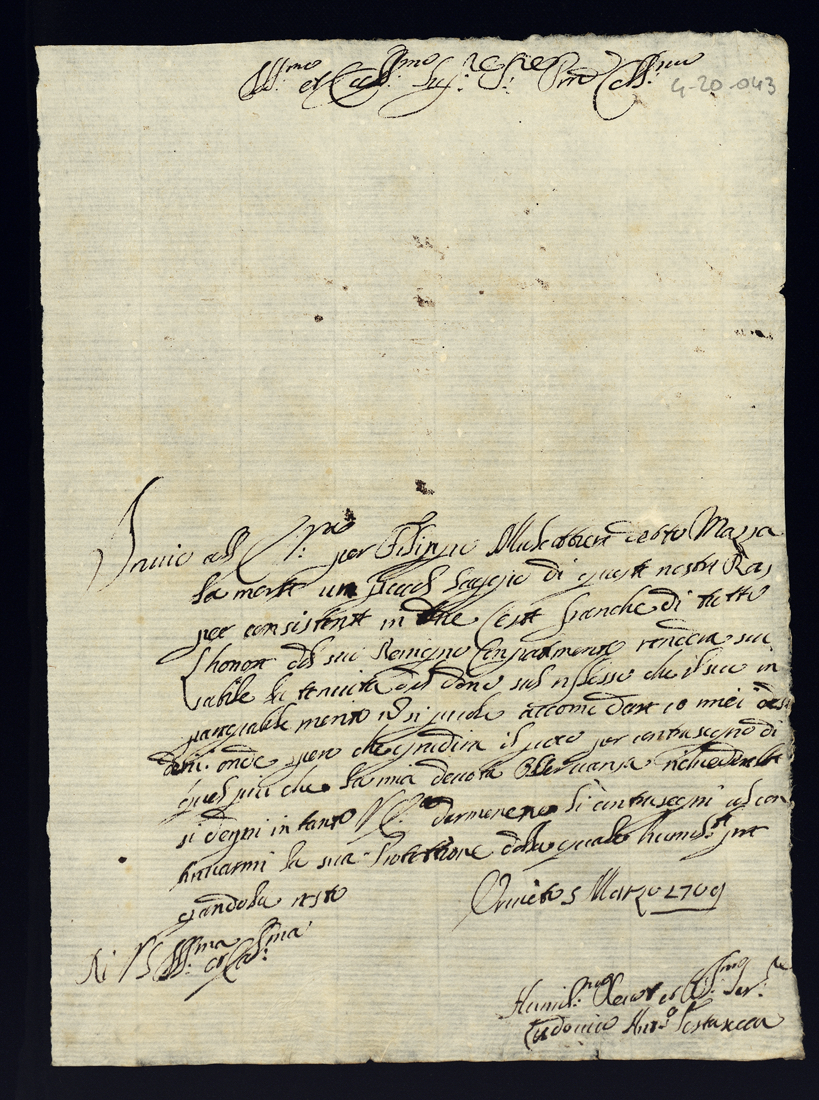 Ill.mo et Ecc.mo Sig.re Sig.re Pne Coll.mo
4-20-043
Invio all' per Filippo detto Mazza
la merita un picciol saggio di questi nostri Ras
per consistenti in due Ceste franche di tutto
L'honor del suo Benigno rendera scu
sabile la tenuità del dono sul riflesso che il suo in
pareggiabile merito si puole accomodare a miei desi
derii. onde spero che gradirà il poco per contrasegno di
quel più che la mia devota osservanza richiederebbe
si degni in tanto V.E. darmene li contrasegni col con
tinuarmi la sua Protettione della quale humil.te pre
gandola resto
Orvieto 5 Marzo 1709
Di V.S. Ill.ma et Ecc.ma
Humil.mo Devot. et Obl.mo Ser.re
Ludovico Ant.o